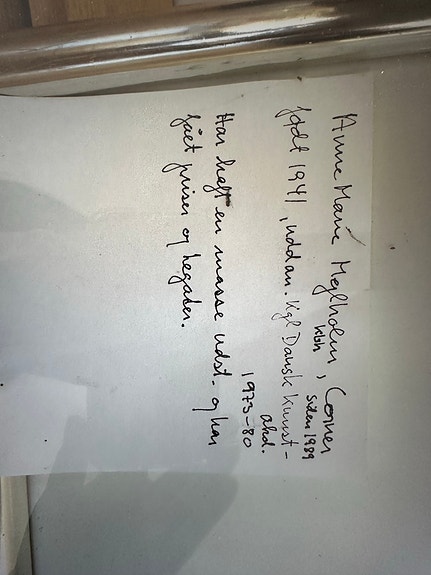 Anne Marie Mejlholm, Corner
kbh siden 1989
født 1941, uddan. Kgl Dansk Kunst-
akd.
1973-80
Har haft en masse udst. og har
fået priser og legater.